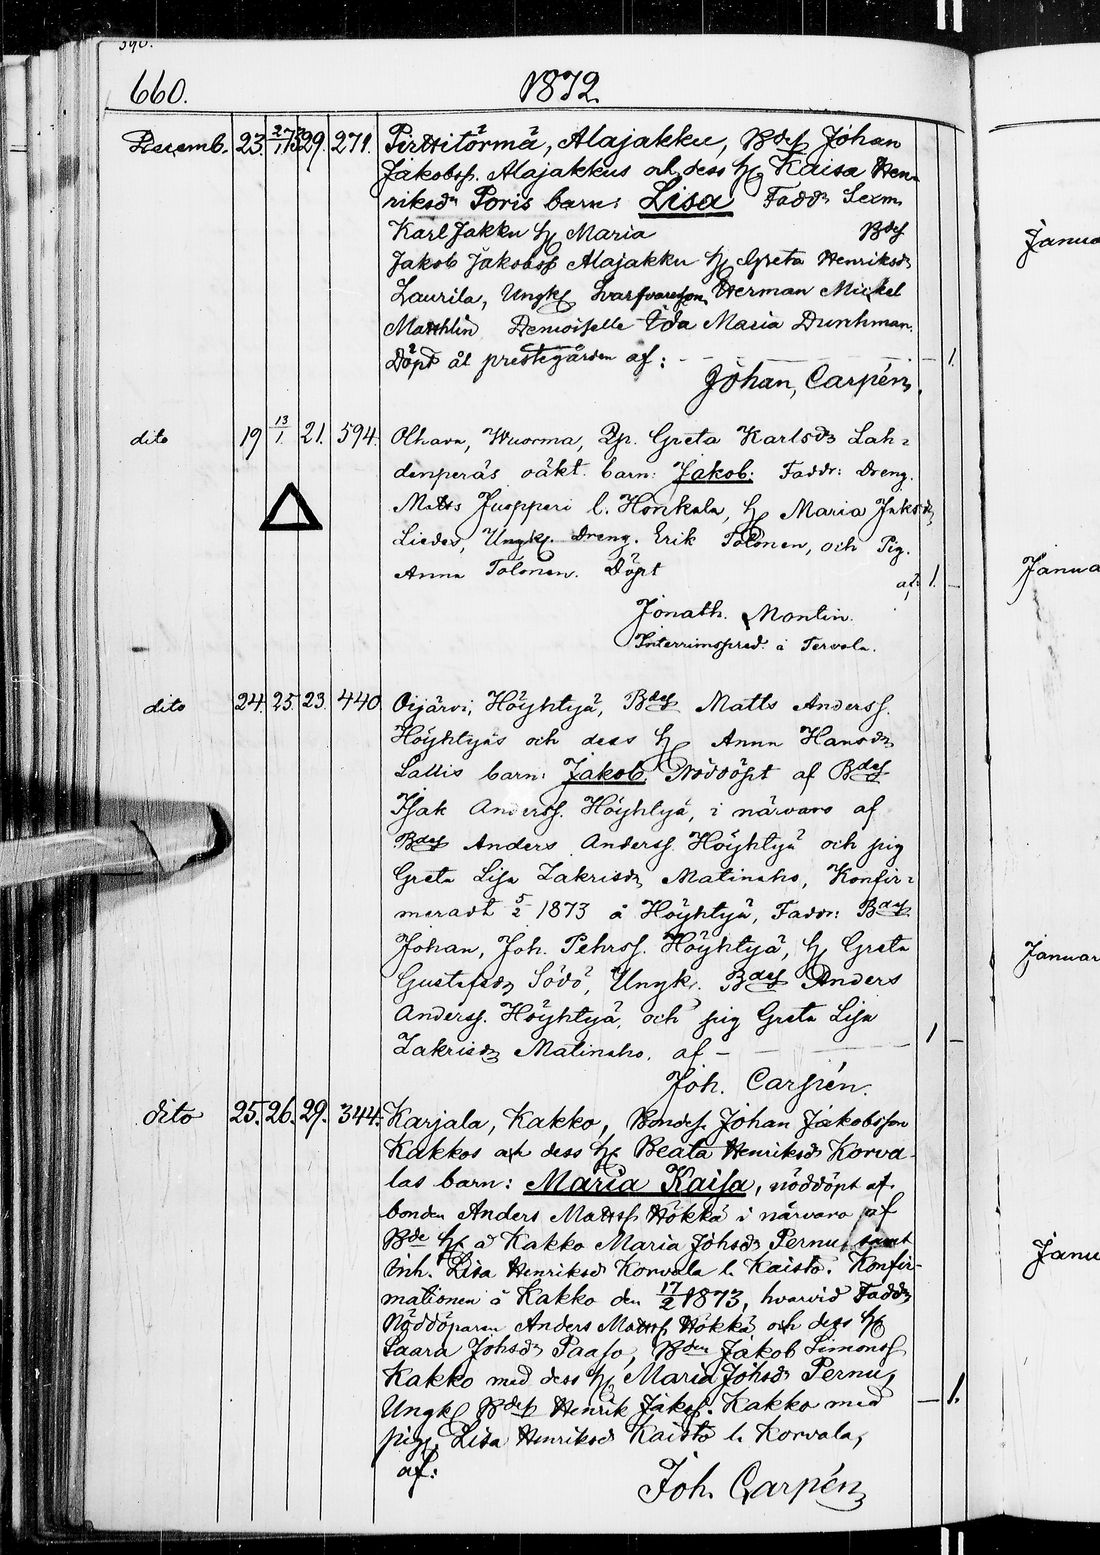 390.
660. 1872
Decemb. 23. 29. 271. Pirttitörmä, Alajakku, Bdes Johan
Jakobss. Alajakkus och dess h. Kaisa Hen-
riksdr Poris barn: Lisa Faddr Sexm
Karl Jakku h. Maria Bdes
Jakob Jakobss Alajakku h. Greta Henriksdr
Laurila, Ungk. Svarfvareson Herman Mickel
Matthlin Demoiselle Ida Maria Dunkman.
Döpt åt prestegården af: - 1.
Johan, Carpén,
dito 19 13/1. 21. 594. Olhava, Wuorma, Pp. Greta Karlsdr Lah-
denperäs oäkt barn: Jakob: Faddr: Dreng.
Matts Juopperi l. Honkala, h. Maria Jakobsdr
Liedes, Ungk. Dreng. Erik Tolonen, och Pig.
Anna Tolonen. Döpt
af: 1. -
Jonath. Montin.
Interrimspred. i Tervola.
dito 24. 25. 23. 440 Oijärvi, Höyhtyä, Bdes Matts Anderss.
Höyhtyäs och dess h. Anna Hansdr
Lallis barn: Jakob. Nöddöpt af Bdes
Isak Anderss. Höyhtyä, i närvaro af
Bdes Anders Anderss Höyhtyä och pig
Greta Lisa Zakrisdr Matinaho, Konfir-
meradt 5/2 1873 å Höyhtyä, Faddr: Bdes
Johan, Joh. Pehrss. Höyhtyä, h. Greta
Gustafsdr Södö, Ungk. Bdes Anders
Anderss. Höyhtyä, och pig Greta Lisa
Zakrisdr Matinaho. af - 1 -
Joh. Carpén.
dito 25. 26. 29. 344. Karjala, Kakko, Bondes. Johan Jakobsson
Kakkos och dess h. Beata Henriksdr Korva-
las barn: Maria Kaisa, nöddöpt af
bonden Anders Matss Hökkä i närvaro af
Bde h. å Kakko Maria Johsdr Pernu, samt
Inh. Lisa Henriksdr Korvala l. Kaisto. Konfir-
mationen å Kakko den 17/2 1873, hvarvid Faddr
Nöddöparen Anders Matss Hökkä och dess h.
Saara Johsdr Paaso, Bden Jakob Simonss
Kakko med dess h. Maria Johsdr Pernu,
Ungk. Bdes Henrik Jakss. Kakko med - 1.
pig. Lisa Henriksdr Kaisto l. Korvala,
af:
Joh. Carpén
Janua
Janua
Januar
Janu